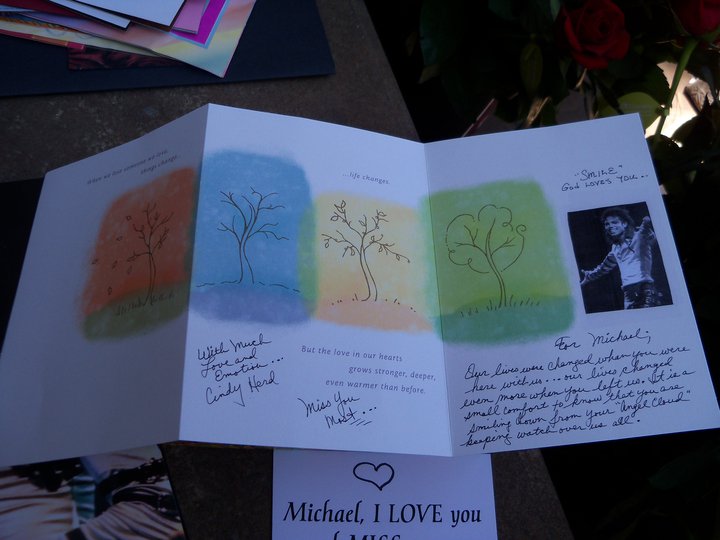 When we lose someone we love,
things change...
...life changes.
"SMILE"
God LOVES YOU...
With Much
Love and
Emotion...
Cindy Herd
But the love in our hearts
grows stronger, deeper,
even warmer than before.
Miss You
Most...
For Michael;
Our lives were changed when you were
here with us...our lives changed
even more when you left us. It is a
small comfort to know that you are
smiling down from your "Angel Cloud"
keeping watch over us all.
Michael, I LOVE you